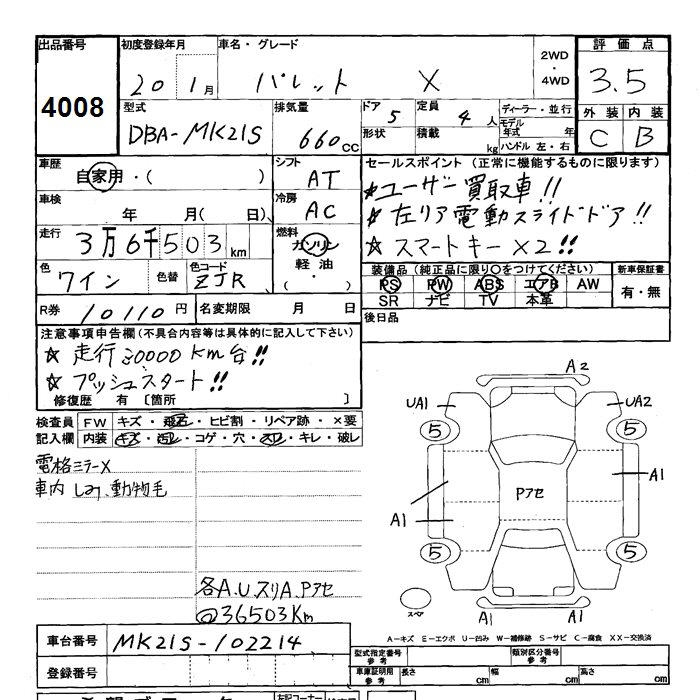 出品番号 初度登録年月 車名・グレード 2WD・4WD 評価点
4008 20年 1月 パレット X 3.5
型式 排気量 ドア 5 定員 4人 ディーラー・並行 外装 内装
DBA-MK21S 660cc 形状 積載 kg モデル年式 年 C B
ハンドル 左・右
車歴 自家用・( ) シフト AT セールスポイント (正常に機能するものに限ります)
☆ユーザー買取車!!
車検 年 月( 日) 冷房 AC ☆左リア電動スライドドア!!
走行 3万6千503km 燃料 ガソリン 軽油 ・( ) ☆スマートキー×2!!
色 ワイン 色替 色コード ZJR 装備品 (純正品に限り○をつけてください) 新車保証書
PS PW ABS エアB AW 有・無
SR ナビ TV 本革
R券 10110円 名変期限 月 日 後日品
注意事項申告欄(不具合内容等は具体的に記入して下さい)
☆走行30000km台!!
☆プッシュスタート!!
修復歴 有 〔箇所 〕
検査員 FW キズ・飛石・ヒビ割・リペア跡・×要
記入欄 内装 キズ・汚レ・コゲ・穴・スレ・キレ・破レ
電格ミラーX
車内 しみ、動物毛
A2
UA1 UA2
5 5
A1
Pアセ
A1
5 5
スペア A1 A1
各A.U.スリA.Pアセ
@36503Km
A-キズ E-エクボ U-凹み W-補修跡 S-サビ C-腐食 XX-交換済
車台番号 MK21S-102214
型式指定番号 参考 類別区分番号 参考
登録番号 車庫証明用 参考 長さ cm 幅 cm 高さ cm